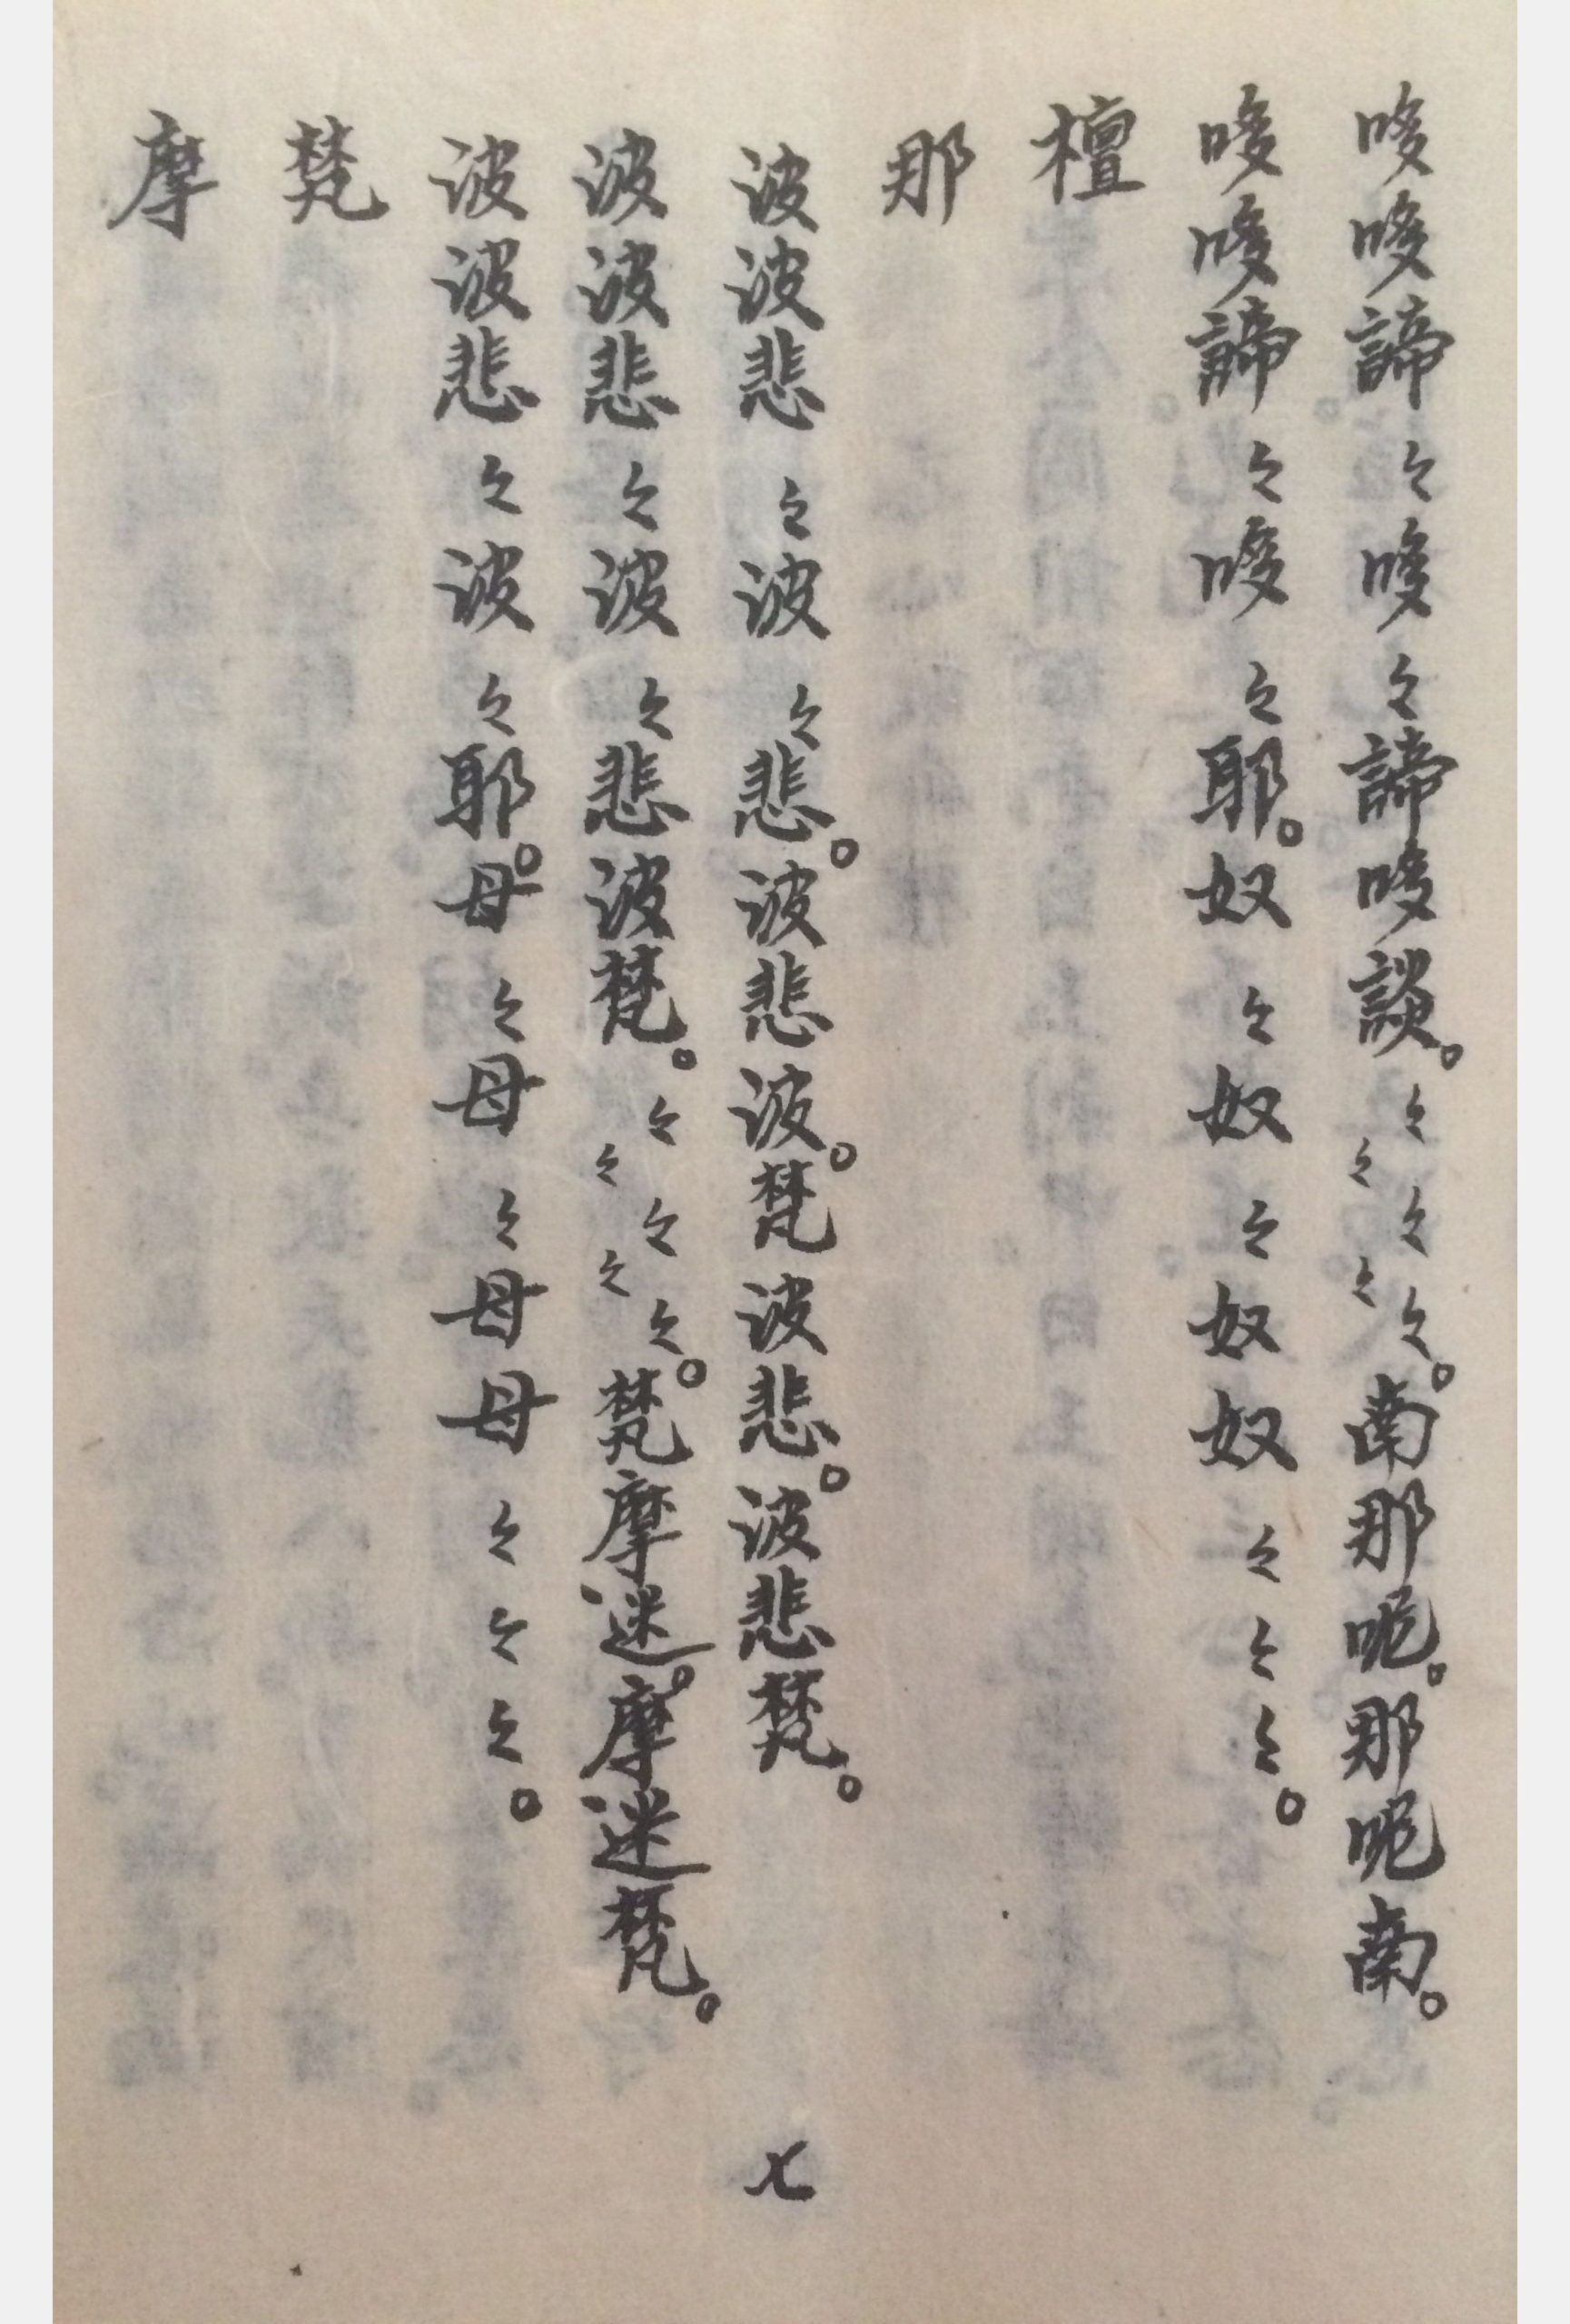 哆哆諦々哆々諦哆談。々々々々々。南那呢。那呢南。
哆哆諦々哆々耶。奴々奴々奴奴々々々。
檀
那
波波悲々波々悲。波悲波。梵波悲。波悲梵。
波波悲々波々悲波梵。々々々々々。梵摩迷。摩迷梵。
波波悲々波々耶。母々母々母母々々々。
梵
摩
七